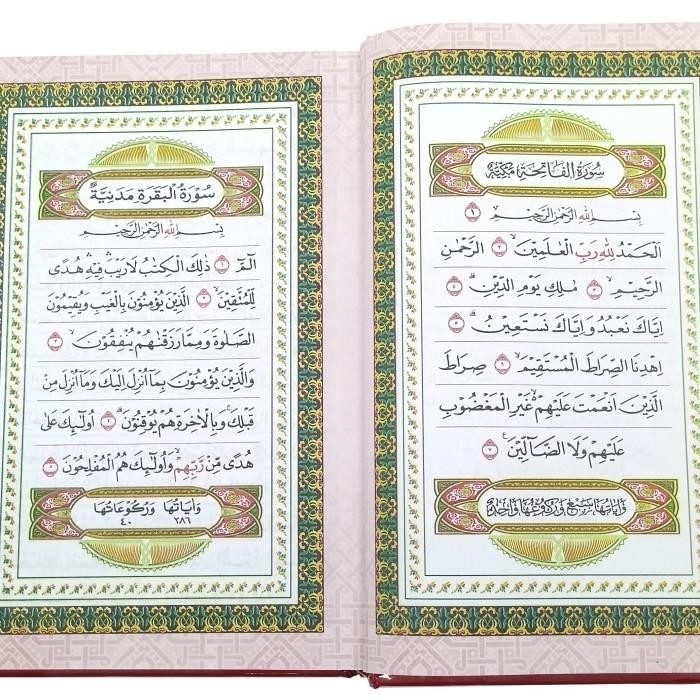 سُورَةُ الْفَاتِحَةِ مَكِّيَّةٌ
بِسْمِ اللهِ الرَّحْمٰنِ الرَّحِيْمِ ١
اَلْحَمْدُ لِلّٰهِ رَبِّ الْعٰلَمِيْنَ ٢ الرَّحْمٰنِ
الرَّحِيْمِ ٣ مٰلِكِ يَوْمِ الدِّيْنِ ٤
اِيَّاكَ نَعْبُدُ وَاِيَّاكَ نَسْتَعِيْنُ ٥
اِهْدِنَا الصِّرَاطَ الْمُسْتَقِيْمَ ٦ صِرَاطَ
الَّذِيْنَ اَنْعَمْتَ عَلَيْهِمْ غَيْرِ الْمَغْضُوْبِ
عَلَيْهِمْ وَلَا الضَّآلِّيْنَ ٧
وَاٰيَاتُهَا سَبْعٌ وَرُكُوْعُهَا وَاحِدٌ
سُوْرَةُ الْبَقَرَةِ مَدَنِيَّةٌ
بِسْمِ اللهِ الرَّحْمٰنِ الرَّحِيْمِ
الٓمّٓ ١ ذٰلِكَ الْكِتٰبُ لَا رَيْبَ فِيْهِ هُدًى
لِّلْمُتَّقِيْنَ ٢ الَّذِيْنَ يُؤْمِنُوْنَ بِالْغَيْبِ وَيُقِيْمُوْنَ
الصَّلٰوةَ وَمِمَّا رَزَقْنٰهُمْ يُنْفِقُوْنَ ٣
وَالَّذِيْنَ يُؤْمِنُوْنَ بِمَآ اُنْزِلَ اِلَيْكَ وَمَآ اُنْزِلَ مِنْ
قَبْلِكَ وَبِالْاٰخِرَةِ هُمْ يُوْقِنُوْنَ ٤ اُولٰٓئِكَ عَلٰى
هُدًى مِّنْ رَّبِّهِمْ وَاُولٰٓئِكَ هُمُ الْمُفْلِحُوْنَ ٥
وَاٰيَاتُهَا وَرُكُوْعَاتُهَا
٢٨٦ ٤٠